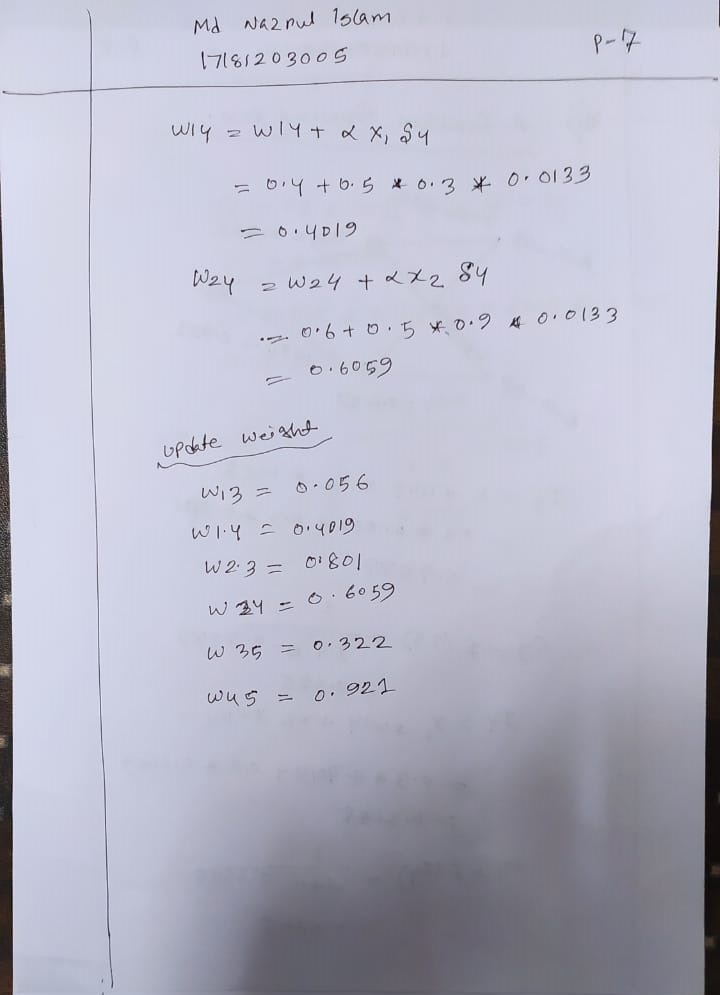 Md Nazrul Islam
17181203005
P-7
W14 = W14 + α x₁ δ4
= 0.4 + 0.5 * 0.3 * 0.0133
= 0.4019
W24 = W24 + α x2 δ4
= 0.6 + 0.5 * 0.9 * 0.0133
= 0.6059
update weight
W13 = 0.056
W1.4 = 0.4019
W2.3 = 0.801
W24 = 0.6059
W35 = 0.322
W45 = 0.921